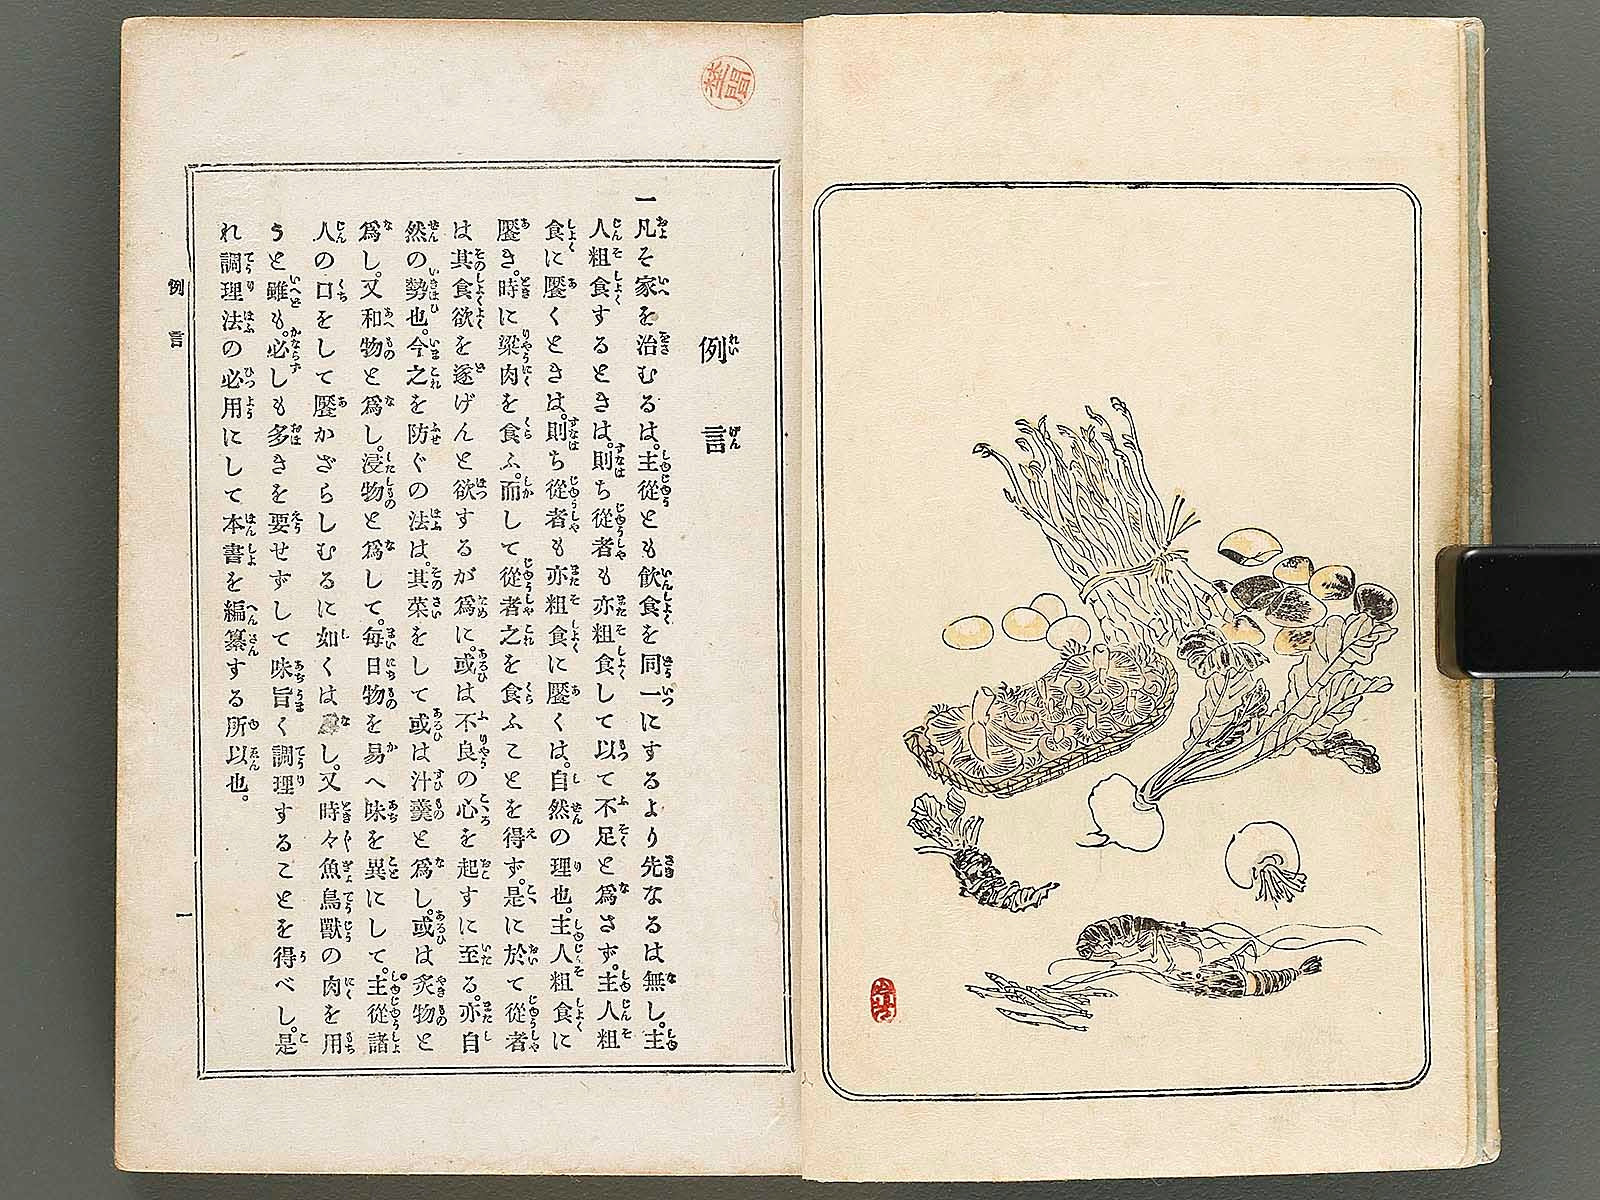 例言
一凡そ家を治むるは。主從とも飮食を同一にするより先なるは無し。主
人粗食するときは。則ち從者も亦粗食して以て不足と爲さず。主人粗
食に饜くときは。則ち從者も亦粗食に饜くは。自然の理也。主人粗食に
饜き。時に粱肉を食ふ。而して從者之を食ふことを得ず。是に於て從者
は其食欲を遂げんと欲するが爲に。或は不良の心を起すに至る。亦自
然の勢也。今之を防ぐの法は。其菜をして或は汁羹と爲し。或は炙物と
爲し。又和物と爲し。浸物と爲して。每日物を易へ味を異にして。主從諸
人の口をして饜かざらしむるに如くは し。又時々魚鳥獸の肉を用
うと雖も。必しも多きを要せずして味旨く調理することを得べし。是
れ調理法の必用にして本書を編纂する所以也。
例言
一